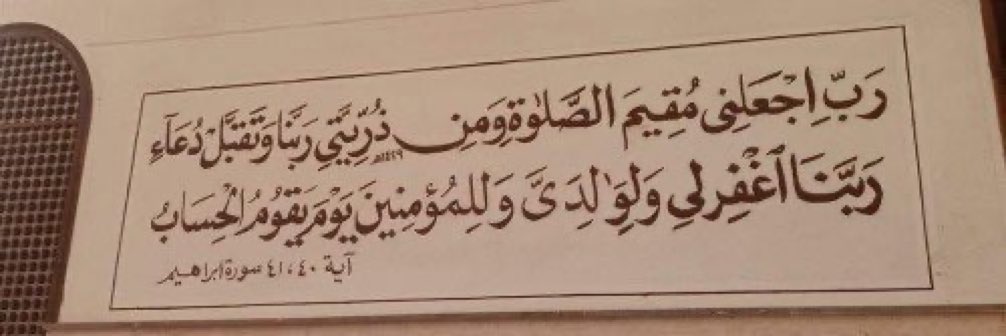 رَبِّ اِجْعَلنِى مُقِيمَ الصَّلوٰةِ وَمِن ذُرِّيَّتِي رَبَّنَا وَتَقَبَّلْ دُعَآءِ
١٤١٦هـ
رَبَّنَا ٱغْفِرلِي وَلِوَٰلِدَىَّ وَلِلمُؤمِنِينَ يَوْمَ يَقُومُ الْحِسَابُ
آية ٤٠، ٤١ سورة ابراهيم